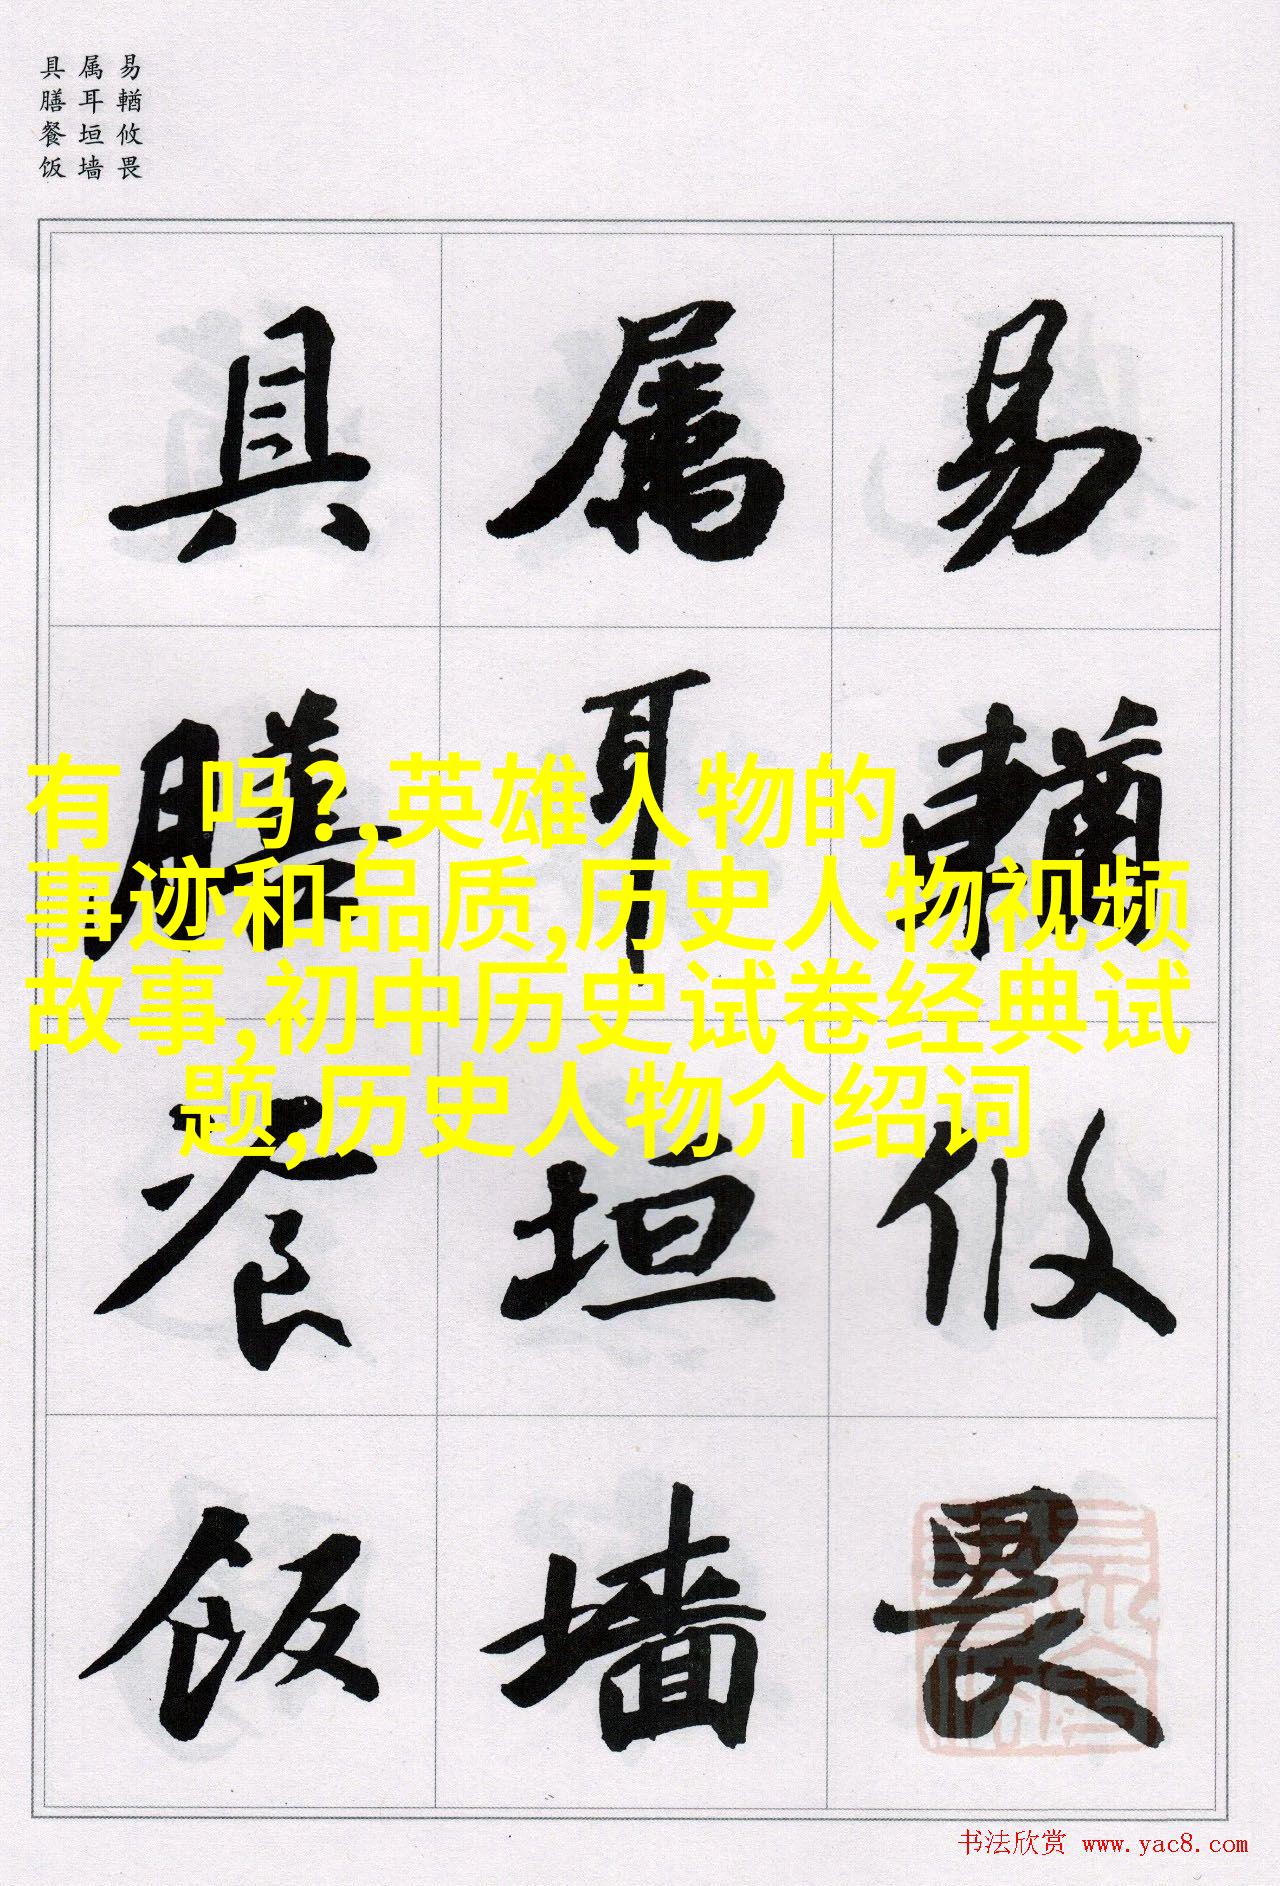 易輶攸畏
属耳垣墙
具膳餐饭
易輶攸畏
属耳垣墙
具膳餐饭
有 吗?,英雄人物的
事迹和品质,历史人物视频
故事,初中历史试卷经典试
题,历史人物介绍词
书法欣赏 www.yac8.com